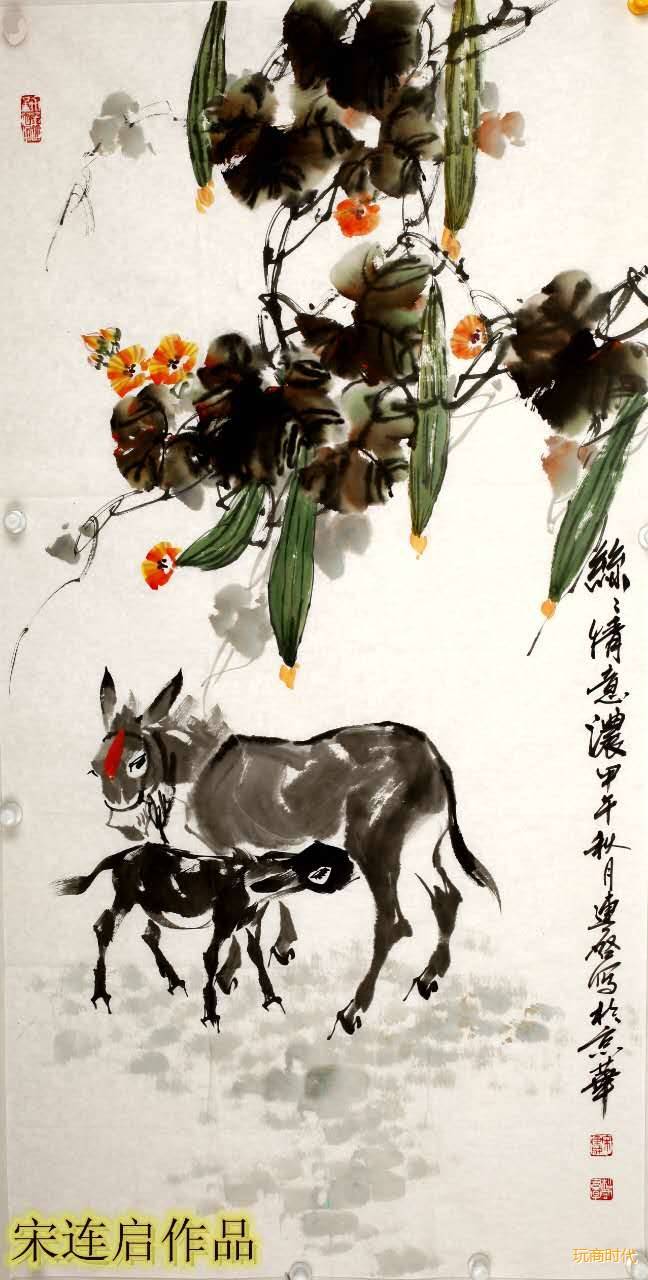 絲〻情意濃 甲午秋月連啓写於京華
宋连启作品
玩商时代